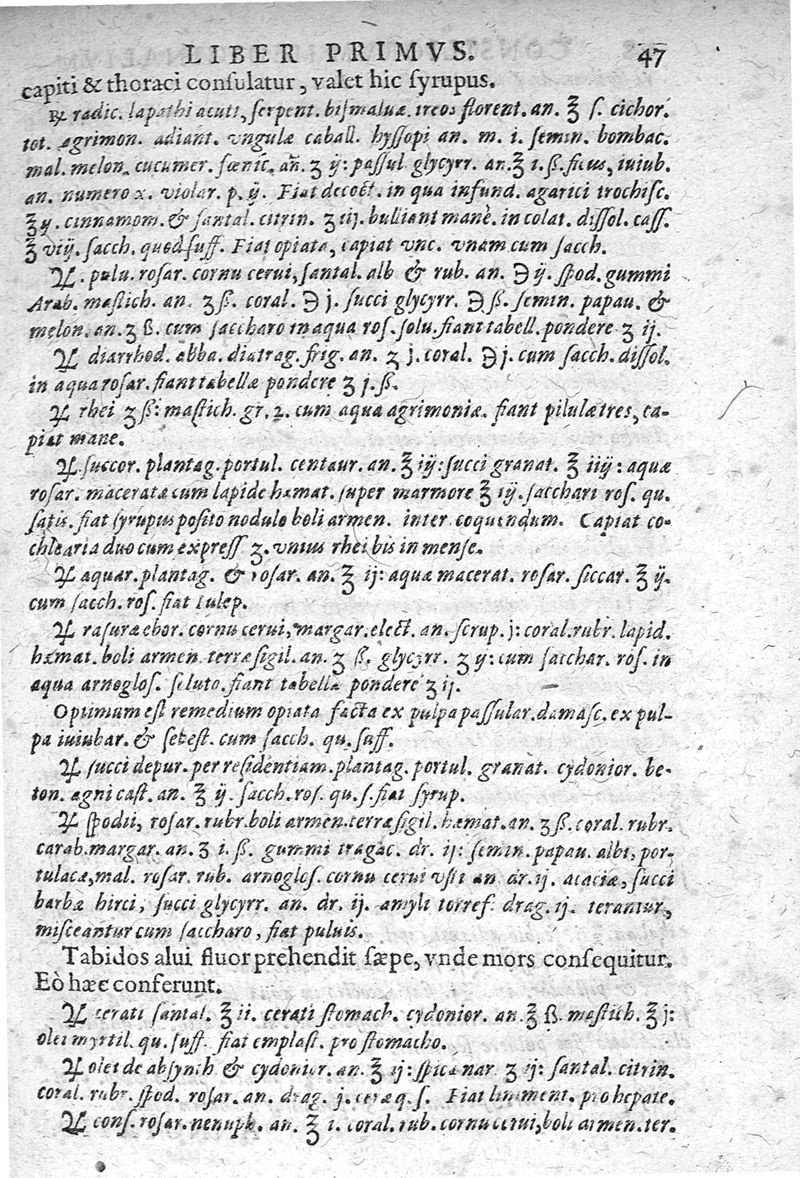 LIBER PRIMVS. 47
capiti & thoraci consulatur, valet hic syrupus.
℞ radic. lapathi acuti, serpent. bismaluæ. ireos florent. an. ℥ s. cichor.
tot. agrimon. adiant. vngulæ caball. hyssopi an. m. i. semin. bombac.
mal. melon. cucumer. fœnic. an̄. ʒ ij: passul glycyrr. an. ℥ i. ß. ficus, iuiub.
an. numero x. violar. p. ij. Fiat decoct. in qua infund. agarici trochisc.
℥ ij. cinnamom. & santal. citrin. ʒ iij. bulliant manè. in colat. dissol. cass.
℥ viij. sacch. quod suff. Fiat opiata, capiat vnc. vnam cum sacch.
℞. pulu. rosar. cornu cerui, santal. alb & rub. an. ℈ ij. spod. gummi
Arab. mastich. an. ʒ ß. coral. ℈ j. succi glycyrr. ℈ ß. semin. papau. &
melon. an. ʒ ß. cum saccharo in aqua ros. solu. fiant tabell. pondere ʒ ij.
℞ diarrhod. abba. diatrag. frig. an. ʒ j. coral. ℈ j. cum sacch. dissol.
in aqua rosar. fiant tabellæ pondere ʒ j. ß.
℞ rhei ʒ ß: mastich. gr. 2. cum aqua agrimoniæ. fiant pilulæ tres, ca-
piat mane.
℞ succor. plantag. portul. centaur. an. ℥ iij: succi granat. ℥ iiij: aquæ
rosar. maceratæ cum lapide hæmat. super marmore ℥ iij. sacchari ros. qu.
satis. fiat syrupus posito nodulo boli armen. inter coquendum. Capiat co-
chlearia duo cum express ʒ. vnius rhei bis in mense.
℞ aquar. plantag. & rosar. an. ℥ ij: aquæ macerat. rosar. siccar. ℥ ij.
cum sacch. ros. fiat Iulep.
℞ rasuræ ebor. cornu cerui, margar. elect. an. scrup. j: coral. rubr. lapid.
hæmat. boli armen. terræ sigil. an. ʒ ß. glycyrr. ʒ ij: cum sacchar. ros. in
aqua arnoglos. soluto. fiant tabellæ pondere ʒ ij.
Optimum est remedium opiata facta ex pulpa passular. damasc. ex pul-
pa iuiubar. & sebest. cum sacch. qu. suff.
℞ succi depur. per residentiam. plantag. portul. granat. cydonior. be-
ton. agni cast. an. ℥ ij. sacch. ros. qu. s. fiat syrup.
℞ spodii, rosar. rubr. boli armen. terræ sigil. hæmat. an. ʒ ß. coral. rubr.
carab. margar. an. ʒ i. ß. gummi tragac. dr. ij: semin. papau. albi, por-
tulacæ, mal. rosar. rub. arnoglos. cornu cerui vsti an dr. ij. acaciæ, succi
barbæ hirci, succi glycyrr. an. dr. ij. amyli torref. drag. ij. terantur,
misceantur cum saccharo, fiat puluis.
Tabidos alui fluor prehendit sæpe, vnde mors consequitur.
Eò hæc conferunt.
℞ cerati santal. ℥ ii. cerati stomach. cydonior. an. ℥ ß. mastich. ℥ j:
olei myrtil. qu. suff. fiat emplast. pro stomacho.
℞ olei de absynth & cydonior. an. ℥ ij: spicæ nar. ʒ ij: santal. citrin.
coral. rubr. spod. rosar. an. drag. j. ceræ q. s. Fiat liniment. pro hepate.
℞ cons. rosar. nenuph. an. ℥ i. coral. rub. cornu cerui, boli armen. ter.